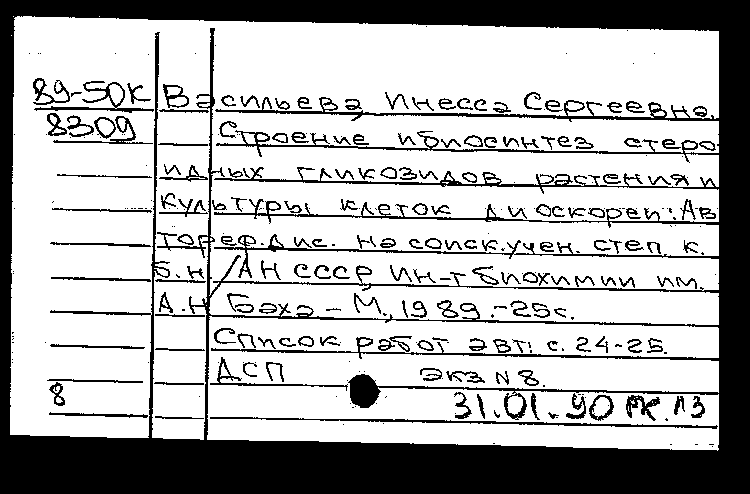 89-50К Васильева, Инесса Сергеевна.
8309 Строение и биосинтез стеро-
идных гликозидов растения и
культуры клеток диоскореи: Ав
тореф. дис. на соиск. учен. степ. к.
б.н. / АН СССР, Ин-т биохимии им.
А.Н. Баха – М., 1989.-25с.
Список работ авт: с. 24-25.
ДСП экз N 8.
8 31.01.90 РК. 113